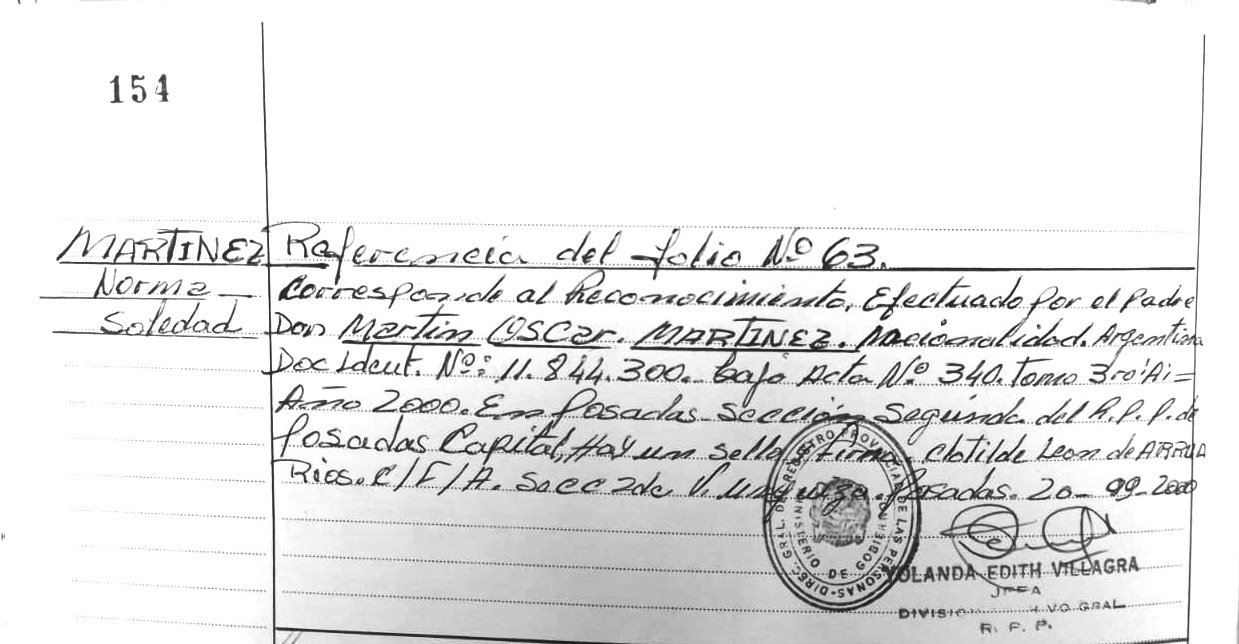 154
MARTINEZ
Norma
Soledad
Referencia del folio Nº 63.
Corresponde al Reconocimiento, Efectuado por el Padre
Don Martin Oscar. MARTINEZ. Nacionalidad. Argentina
Doc Ident. Nº: 11.844.300. bajo Acta Nº 340. Tomo 3ro "A" =
Año 2000. En Posadas Sección Segunda del R.P.P. de
Posadas Capital, Hay un sello, firma, Clotilde Leon de ARRUA
Rios. C/F/A. Secc 2da V. Urquiza. Posadas. 20-09-2000
DIREC. GRAL. DE REGISTRO PROVINCIAL DE LAS PERSONAS
MINISTERIO DE GOBIERNO
YOLANDA EDITH VILLAGRA
JEFA
DIVISION GRAL
R. P. P.